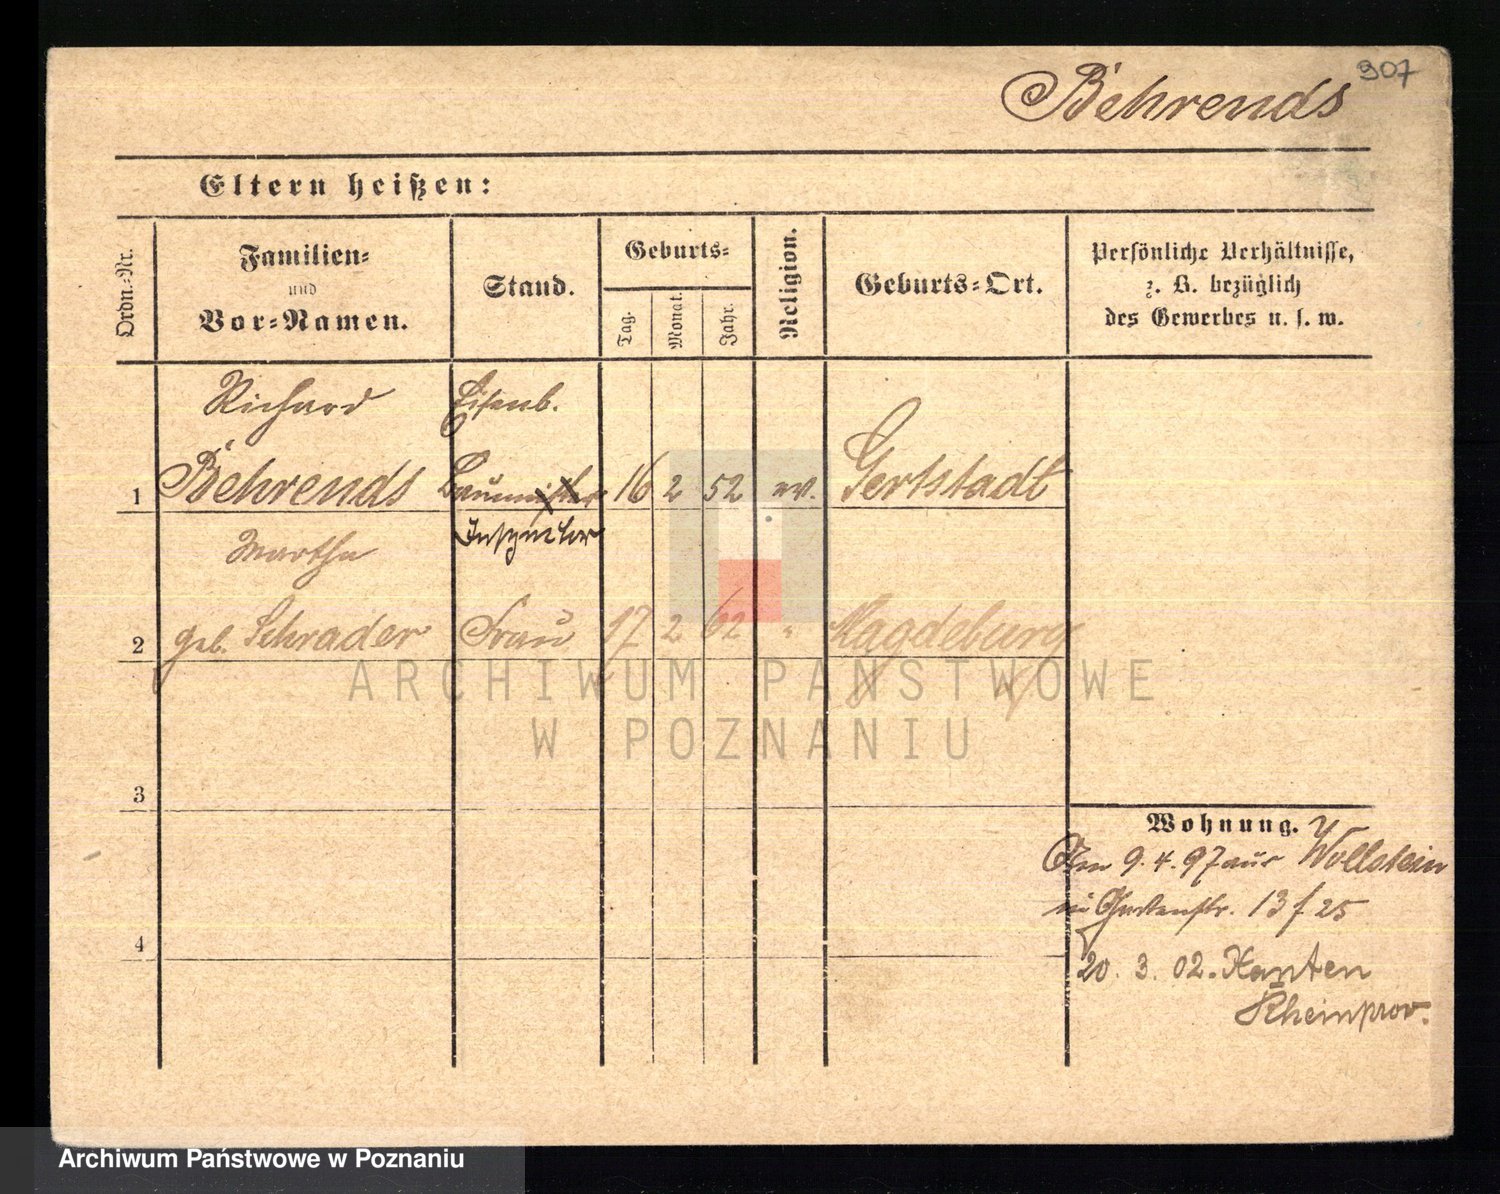 907
Behrends
Eltern heißen:
Ordn.-Nr.
Familien-
und
Vor-Namen.
Stand.
Geburts-
Tag.
Monat.
Jahr.
Religion.
Geburts-Ort.
Persönliche Verhältnisse,
z. B. bezüglich
des Gewerbes u. s. w.
Richard Eisenb.
1 Behrends Baumeister 16 2 52 ev. Gerbstadt
Inspector
Martha
2 geb. Schrader Frau 17 2 62 " Magdeburg
ARCHIWUM PAŃSTWOWE
W POZNANIU
3
Wohnung.
Am 9.4.97 aus Wollstein
in Gartenstr. 13 f 25
4
20. 3. 02. Xanten
Rheinprov.
Archiwum Państwowe w Poznaniu